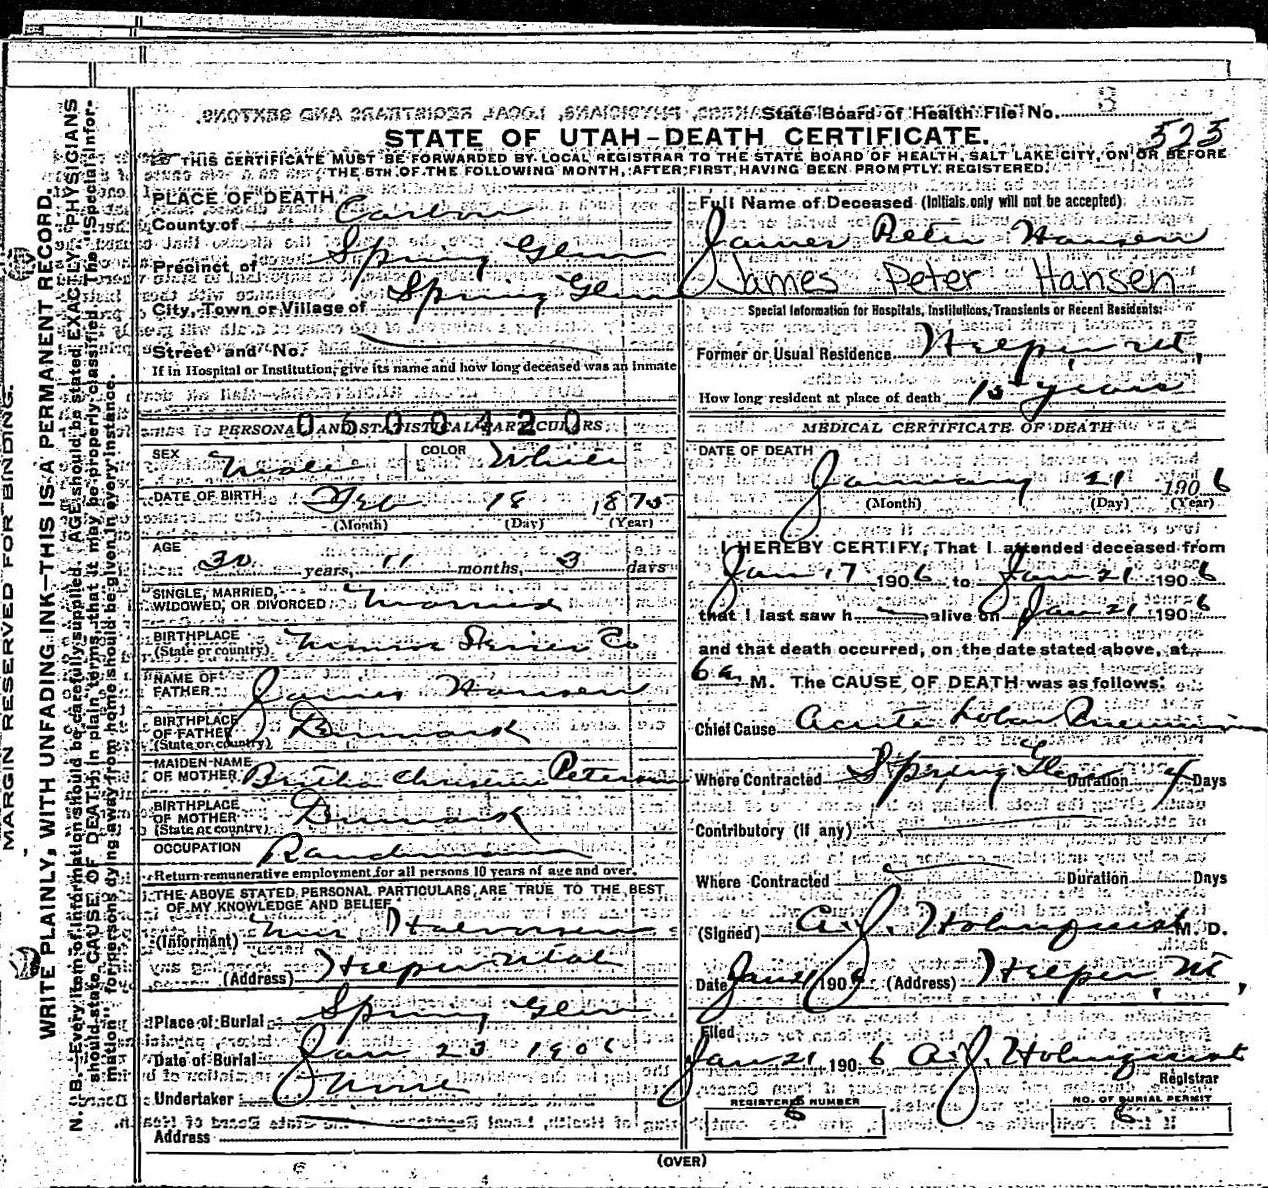 State Board of Health File No. 8
523
STATE OF UTAH—DEATH CERTIFICATE.
THIS CERTIFICATE MUST BE FORWARDED BY LOCAL REGISTRAR TO THE STATE BOARD OF HEALTH, SALT LAKE CITY, ON OR BEFORE
THE 5TH OF THE FOLLOWING MONTH, AFTER FIRST HAVING BEEN PROMPTLY REGISTERED.
MARGIN RESERVED FOR BINDING.
WRITE PLAINLY, WITH UNFADING INK—THIS IS A PERMANENT RECORD.
N. B.—Every item of information should be carefully supplied. AGE should be stated EXACTLY. PHYSICIANS
should state CAUSE OF DEATH in plain terms, that it may be properly classified. The "Special Infor-
mation" for persons dying away from home should be given in every instance.
PLACE OF DEATH
County of Carbon
Precinct of Spring Glen
City, Town or Village of Spring Glen
Street and No.
If in Hospital or Institution, give its name and how long deceased was an inmate
0600420
PERSONAL AND STATISTICAL PARTICULARS
SEX Male COLOR White
DATE OF BIRTH Feb 18 1875
(Month) (Day) (Year)
AGE 30 years, 11 months, 3 days
SINGLE, MARRIED,
WIDOWED, OR DIVORCED Married
BIRTHPLACE
(State or country) Co
NAME OF
FATHER James Hansen
BIRTHPLACE
OF FATHER Denmark
(State or country)
MAIDEN NAME
OF MOTHER Peterson
BIRTHPLACE
OF MOTHER Denmark
(State or country)
OCCUPATION Ranchman
Return remunerative employment for all persons 10 years of age and over.
THE ABOVE STATED PERSONAL PARTICULARS ARE TRUE TO THE BEST
OF MY KNOWLEDGE AND BELIEF
(Informant) Halvorsen
(Address) Helper Utah
Place of Burial Spring Glen
Date of Burial Jan 23 1906
Undertaker None
Address
Full Name of Deceased (Initials only will not be accepted)
James Peter Hansen
James Peter Hansen
Special Information for Hospitals, Institutions, Transients or Recent Residents:
Former or Usual Residence Helper, Ut,
How long resident at place of death 15 years
MEDICAL CERTIFICATE OF DEATH
DATE OF DEATH
January 21 1906
(Month) (Day) (Year)
I HEREBY CERTIFY, That I attended deceased from
Jan 17 1906 to Jan 21 1906
that I last saw h alive on Jan 21 1906
and that death occurred, on the date stated above, at
6 a. M. The CAUSE OF DEATH was as follows:
Chief Cause Acute Lobar Pneumonia
Where Contracted Spring Glen Duration 4 Days
Contributory (if any)
Where Contracted Duration Days
(Signed) A. J. Holmquist M. D.
Date Jan 21 1906 (Address) Helper, Ut,
Filed
Jan 21 1906 A. J. Holmquist
Registrar
REGISTERED NUMBER
NO. OF BURIAL PERMIT
(OVER)